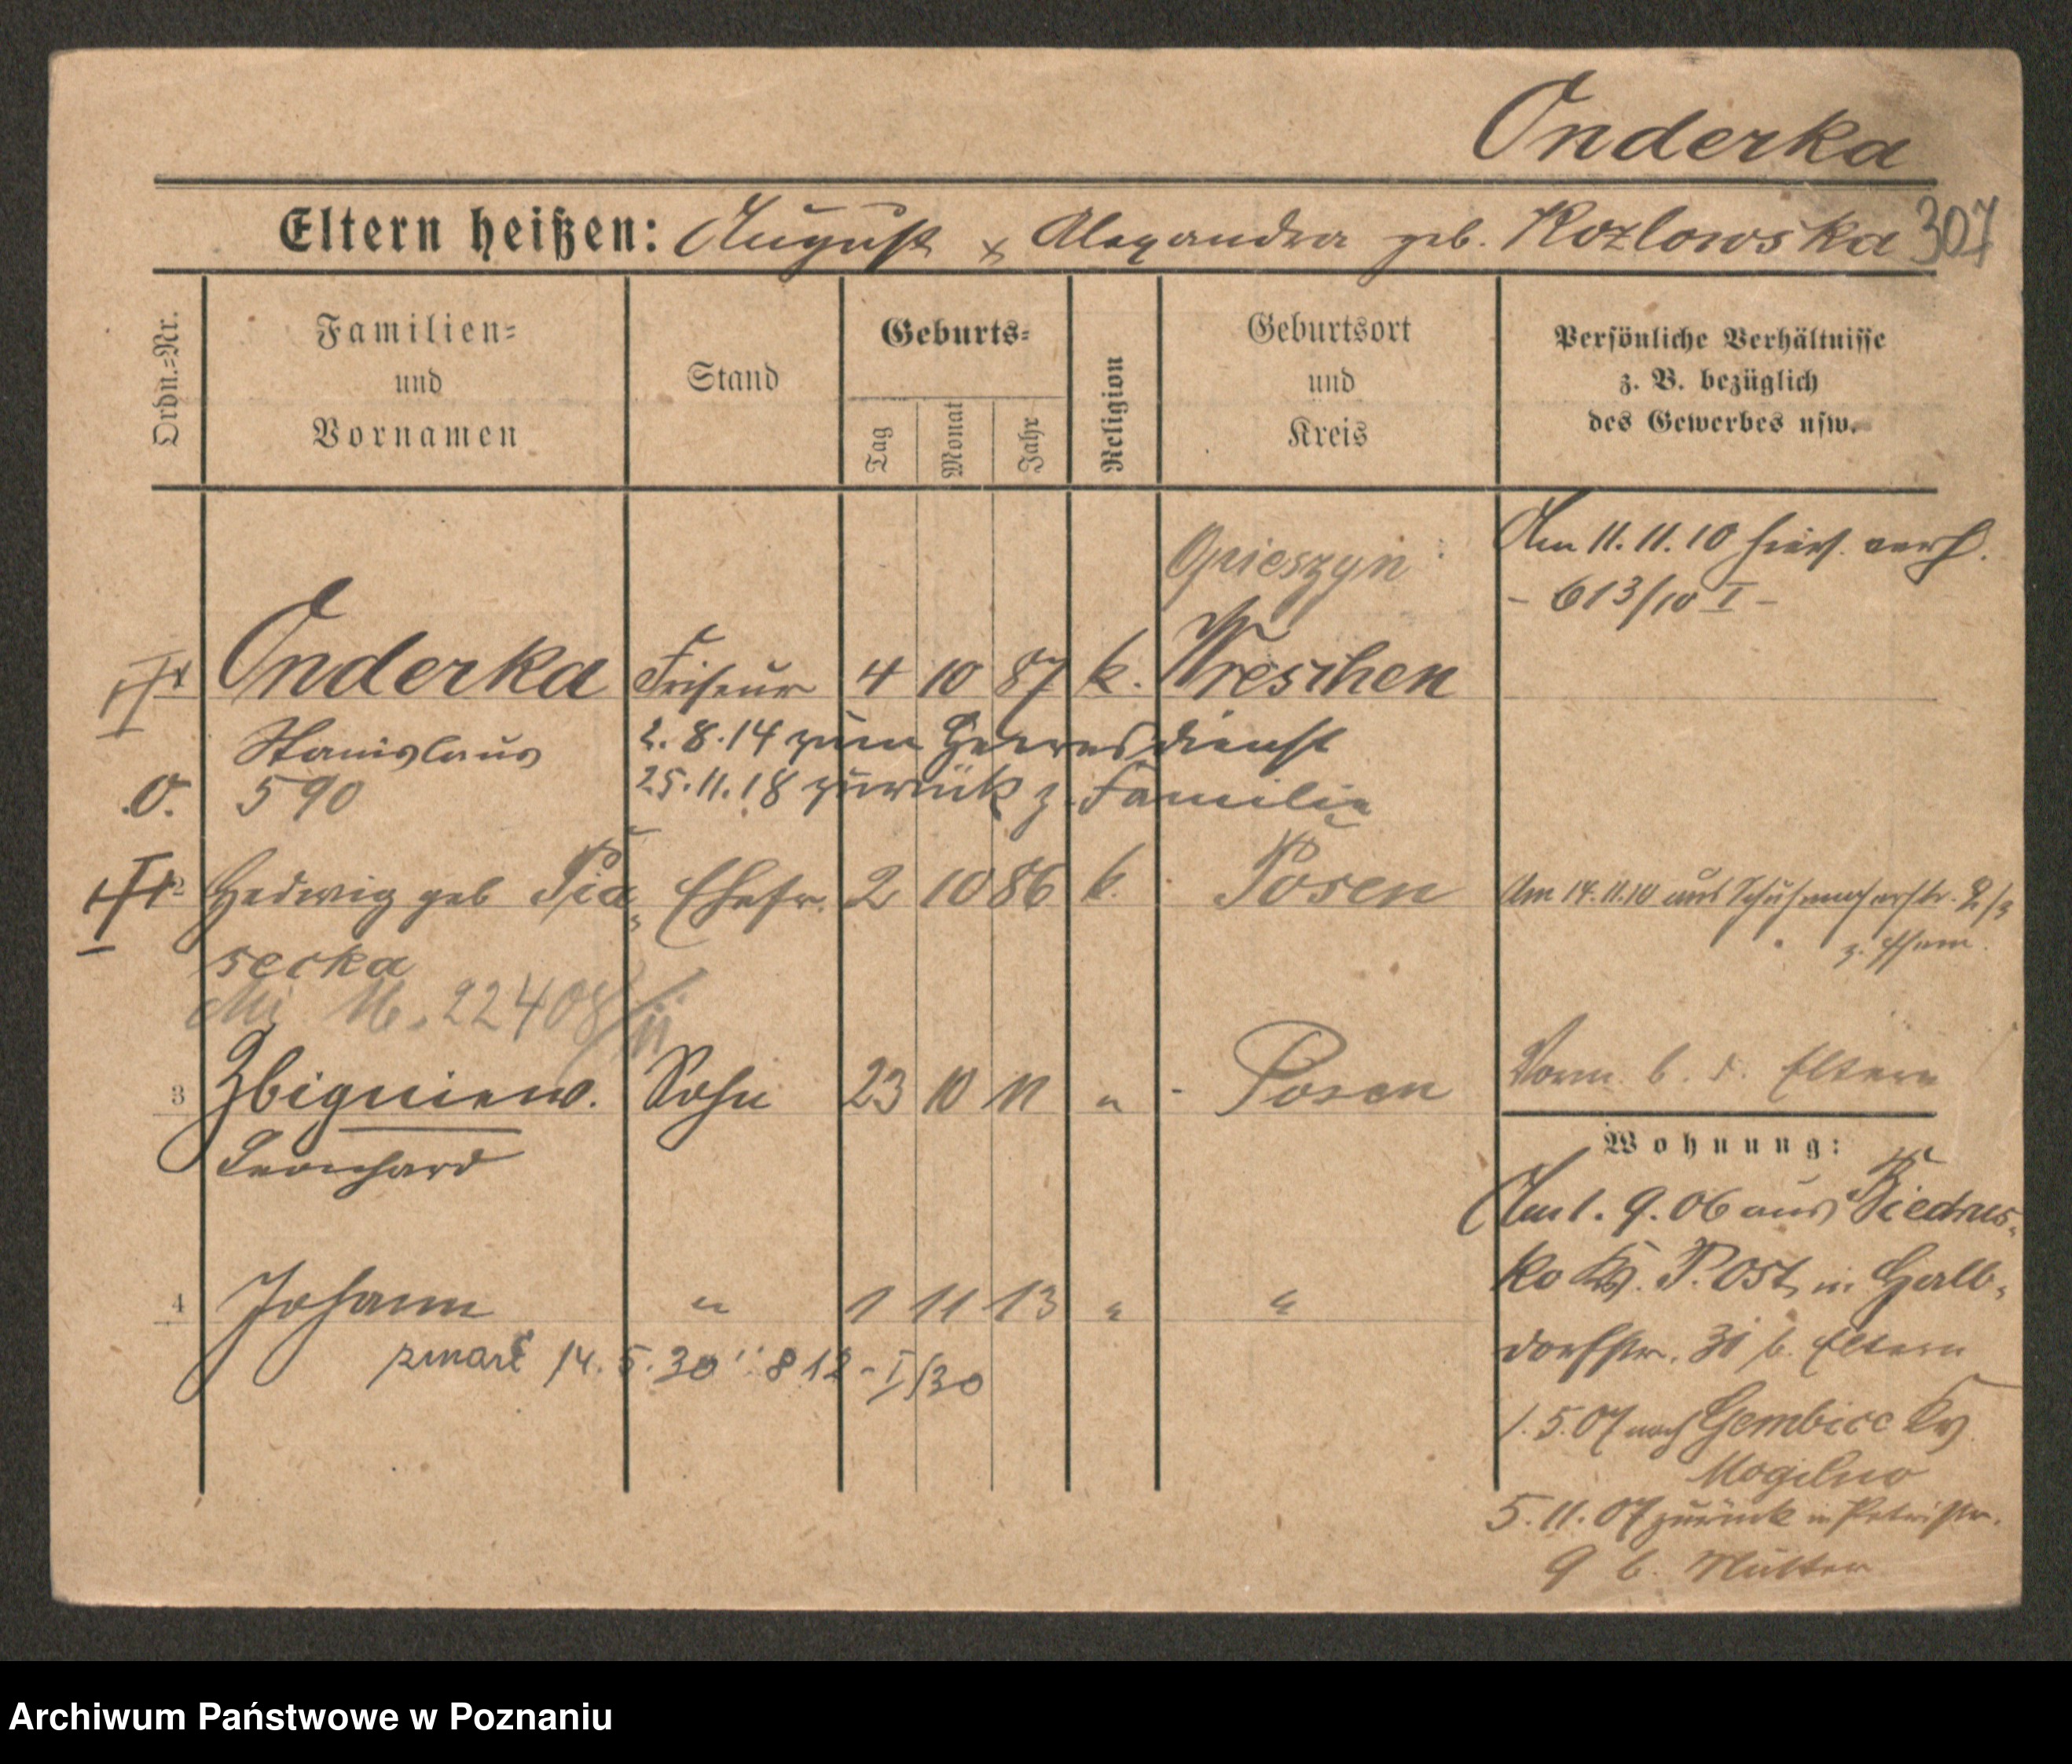 Onderka
Eltern heißen: August x Alexandra geb. Kozlowska 307
Ordn.-Nr.
Familien-
und
Vornamen
Stand
Geburts-
Tag
Monat
Jahr
Religion
Geburtsort
und
Kreis
Persönliche Verhältnisse
z. B. bezüglich
des Gewerbes usw.
Am 11.11.10 hier verh.
- 613/10 I -
Opieszyn
1 Onderka Friseur 4 10 87 k. Wreschen
Stanislaus
2.8.14 zum Heeresdienst
O. 590
25.11.18 zurück z. Familie
2 Hedwig geb Pia„ Ehefr. 2 10 86 k. Posen
secka
Am 14.11.10 aus
22408/II
3 Zbigniew. Sohn 23 10 11 " - Posen
Leonhard
b. d. Eltern
Wohnung:
Am 1.9.06 aus Biedrus„
ko Kr. P. Ost, in Halb„
dorfstr. 31 b. Eltern
1.5.07 nach Gembice Kr
Mogilno
5.11.07 zurück in Petristr.
9 b. Mutter
4 Johann " 1 11 13 " "
zmarł 14.5.30 812-I/30
Archiwum Państwowe w Poznaniu